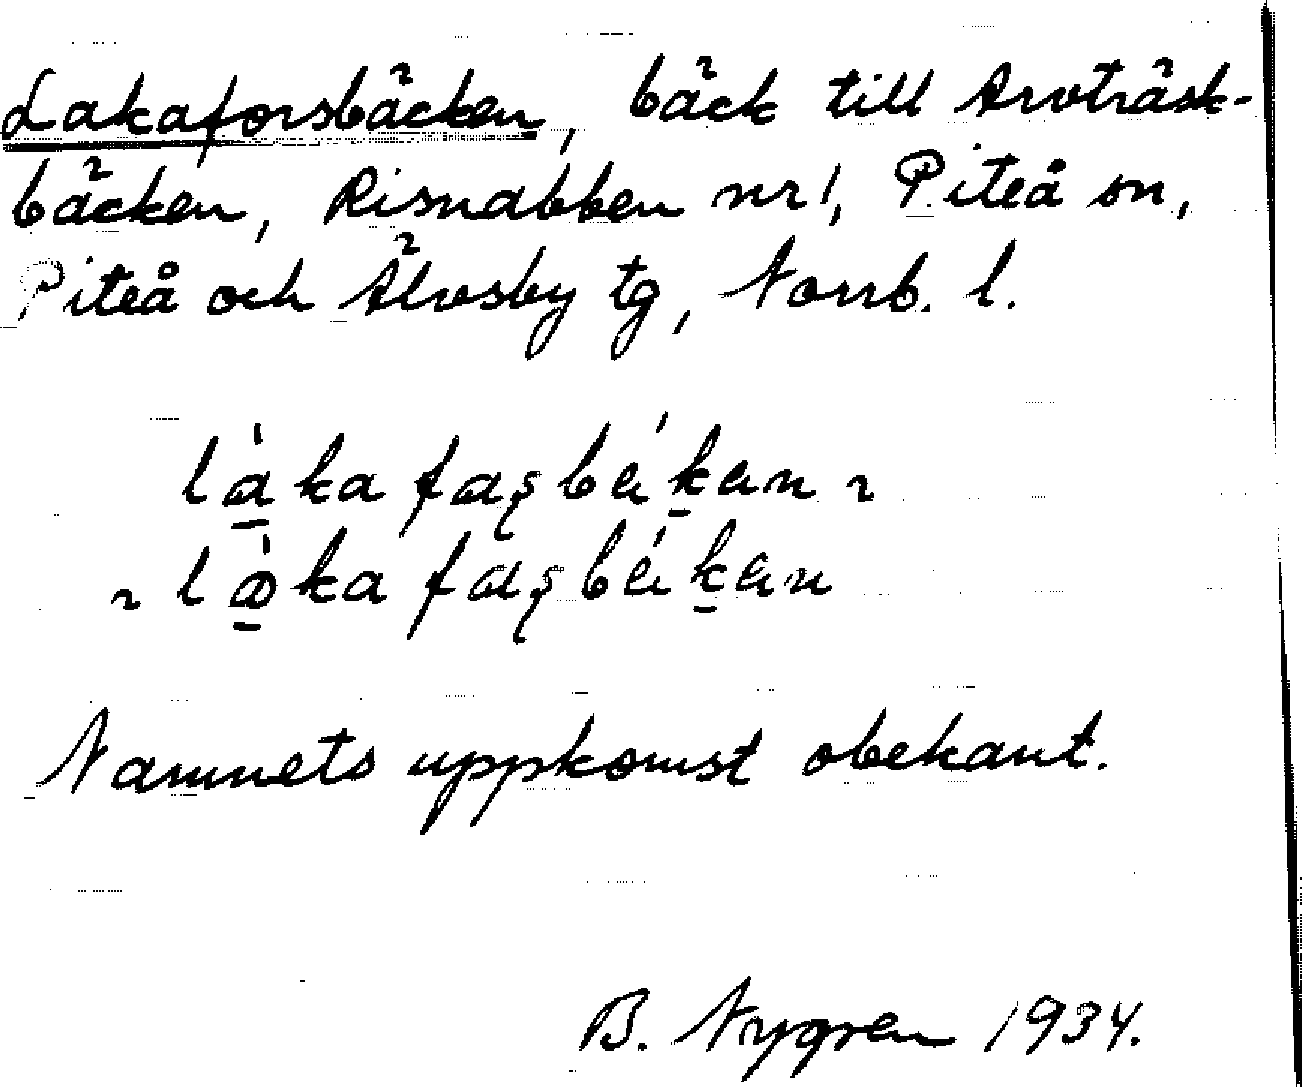 Lakaforsbäcken, bäck till Arvträsk-
bäcken, Risnabben nr 1, Piteå sn,
Piteå och Älvsby tg, Norrb. l.
Namnets uppkomst obekant.
B. Nygren 1934.